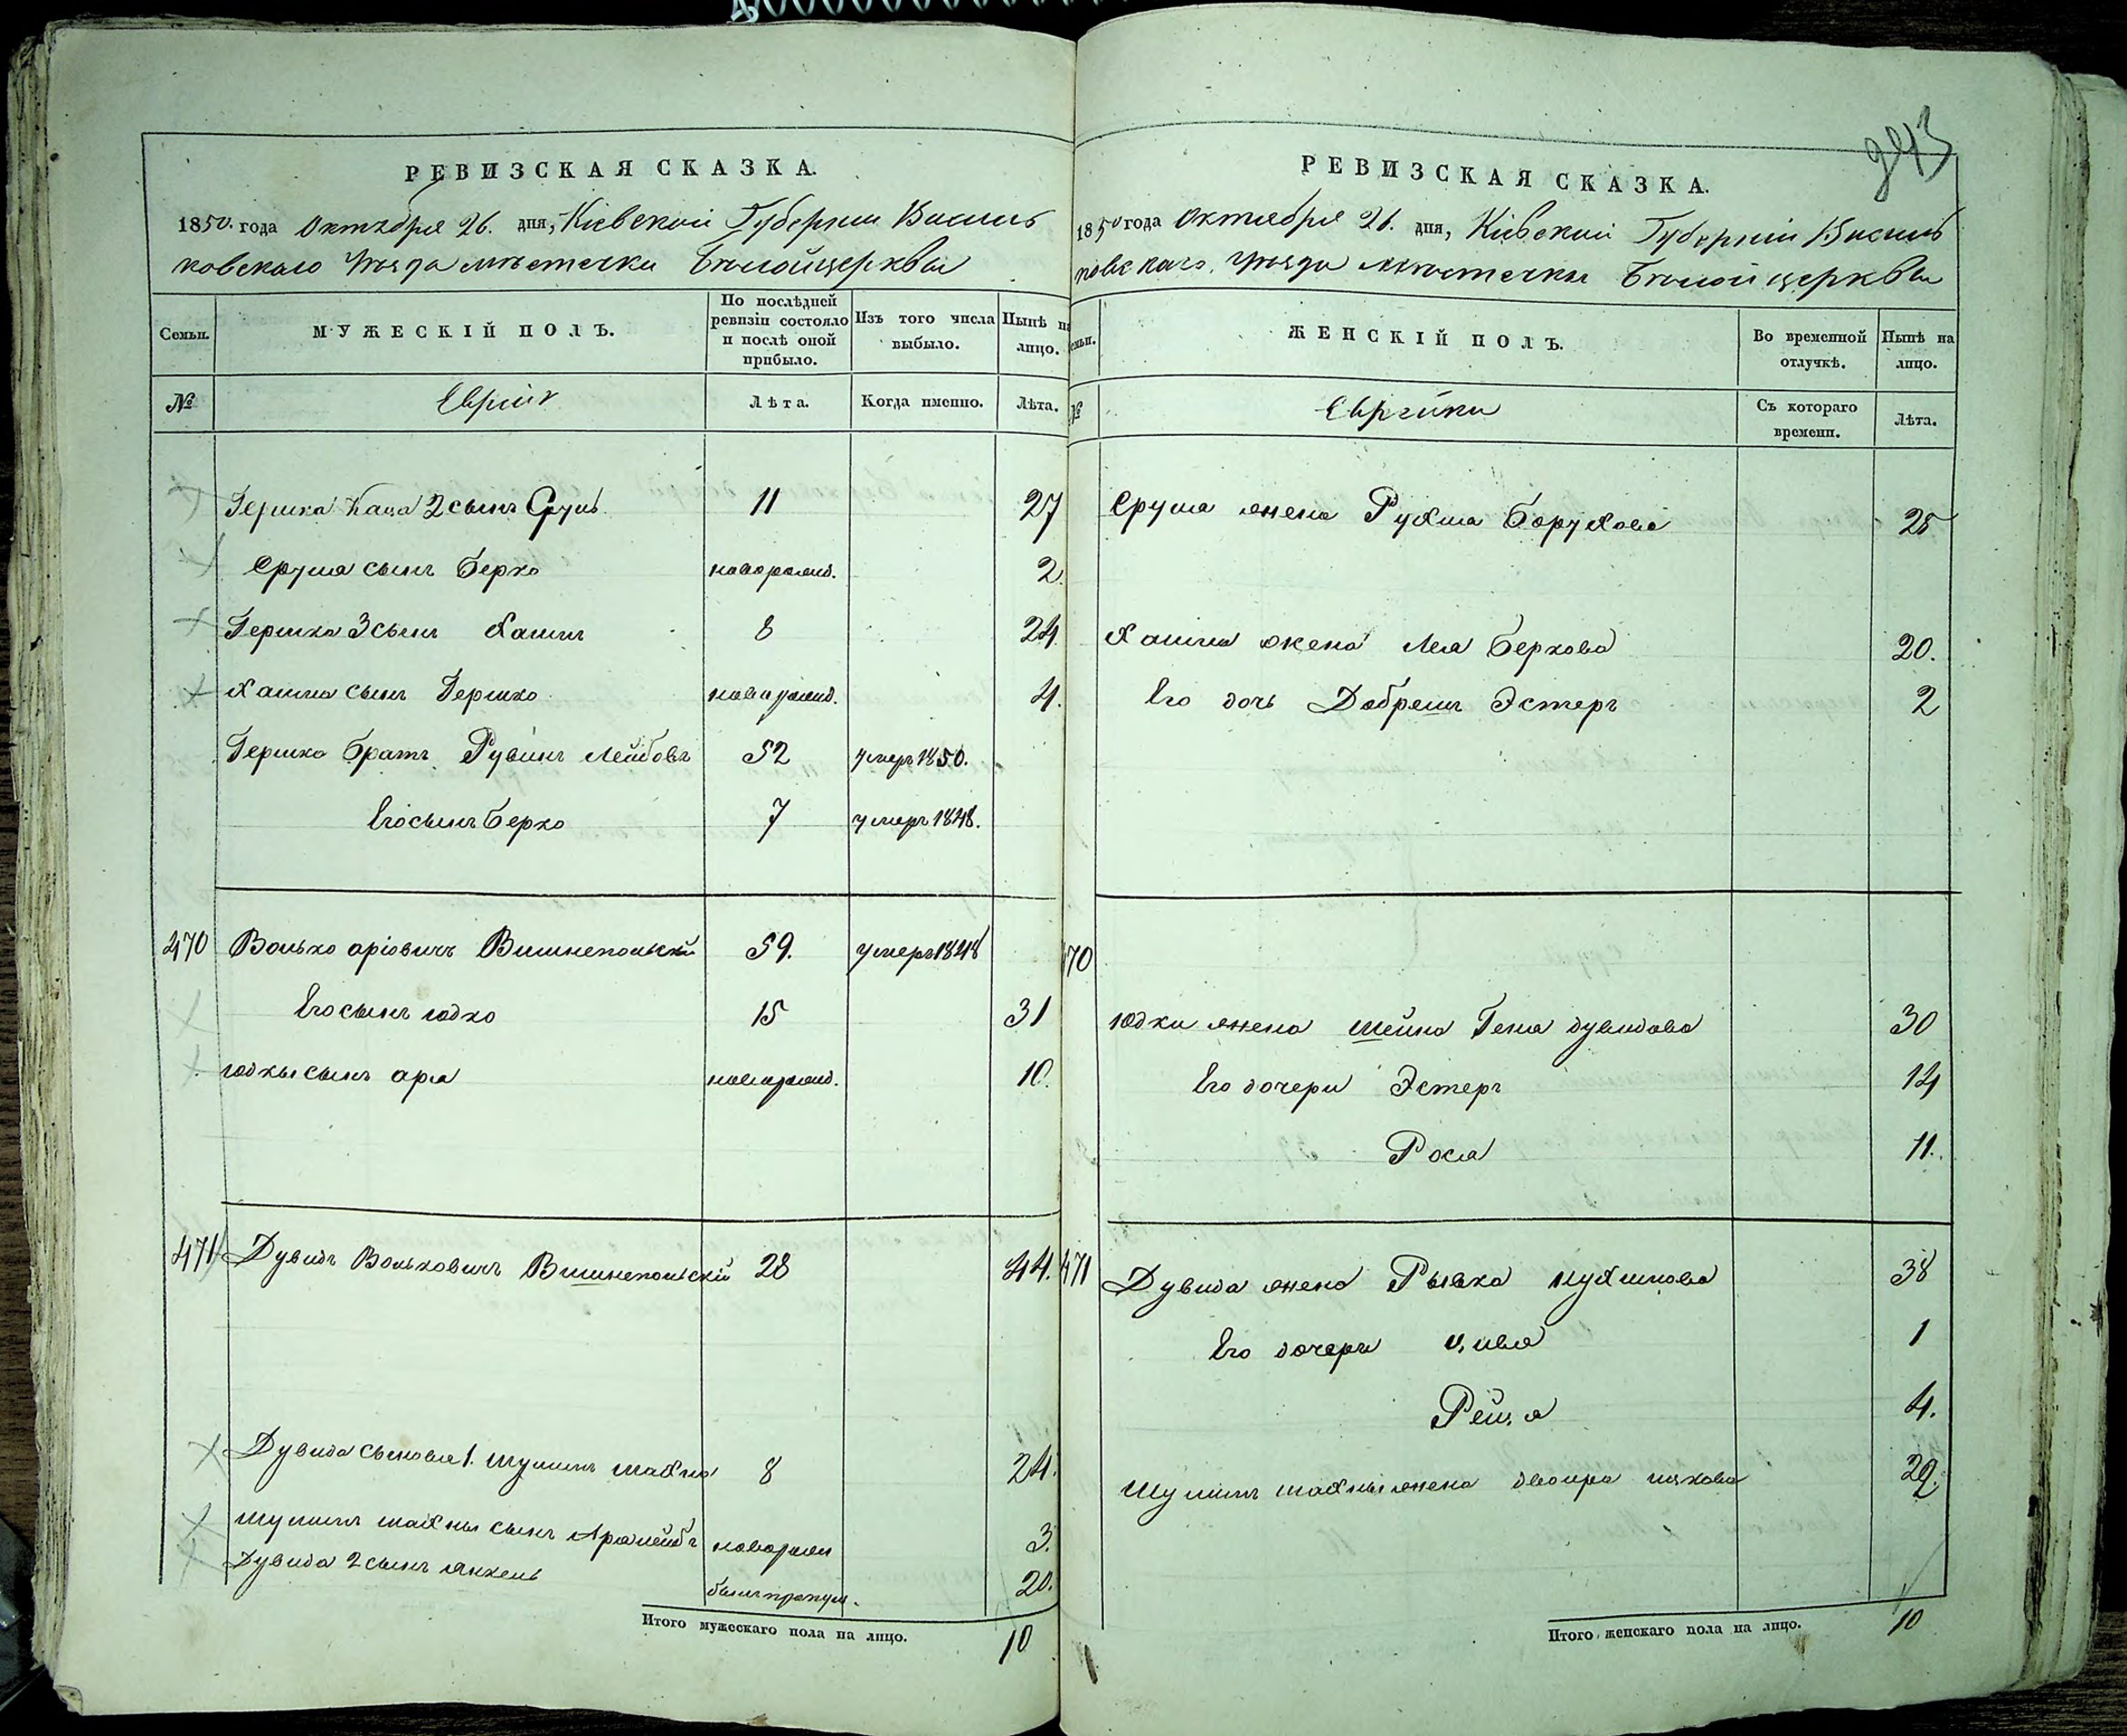 243
РЕВИЗСКАЯ СКАЗКА.
1850. года Октября 26. дня, Кіевской Губерніи Василь
ковскаго Уѣзда мѣстечка Бѣлойцеркви
Семьи. МУЖЕСКІЙ ПОЛЪ. По послѣдней ревизіи состояло и послѣ оной прибыло. Изъ того числа выбыло. Нынѣ на лицо.
№ Евреи Лѣта. Когда именно. Лѣта.
Гершка Каца 2 сынъ Сруль 11 27
Сруля сынъ Берко новорожд. 2.
Гершка 3 сынъ Хаимъ 8 24.
Хаима сынъ Гершко новорожд. 4.
Гершка братъ Рувинъ Лейбовъ 52 умеръ 1850.
Его сынъ Берко 7 умеръ 1848.
470 Волько аріовичъ Вишнепольскій 59. умеръ 1848
Его сынъ юдко 15 31
юдкы сынъ аріа новорожд. 10.
471 Дувидъ Вольковичъ Вишнепольскій 28 44.
Дувида сыновья 1. Шулимъ шахно 8 24.
Шулимъ шахны сынъ Арялейбъ новорожд 3.
Дувида 2 сынъ янкель былъ пропущ. 20.
Итого мужескаго пола на лицо. 10
РЕВИЗСКАЯ СКАЗКА.
1850 года Октября 26. дня, Кіевской Губерніи Василь
ковскаго Уѣзда мѣстечка Бѣлойцеркви
Семьи. ЖЕНСКІЙ ПОЛЪ. Во временной отлучкѣ. Нынѣ на лицо.
№ Еврейки Съ котораго времени. Лѣта.
Сруля жена Рухля Борухова 25
Хаима жена Лея Беркова 20.
Его дочь Добрешъ Эстеръ 2
470
юдки жена Шейна Геня дувидова 30
Его дочери Эстеръ 14
Рося 11.
471 Дувида жена Рывка 38
Его дочери Цивя 1
Рейзя 4.
Шулимъ шахны жена двойра ицкова 22.
Итого женскаго пола на лицо. 10